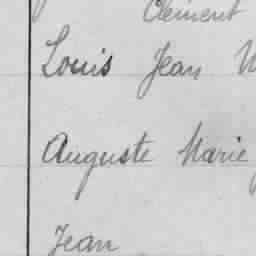 Clément
Louis Jean
Auguste Marie
Jean